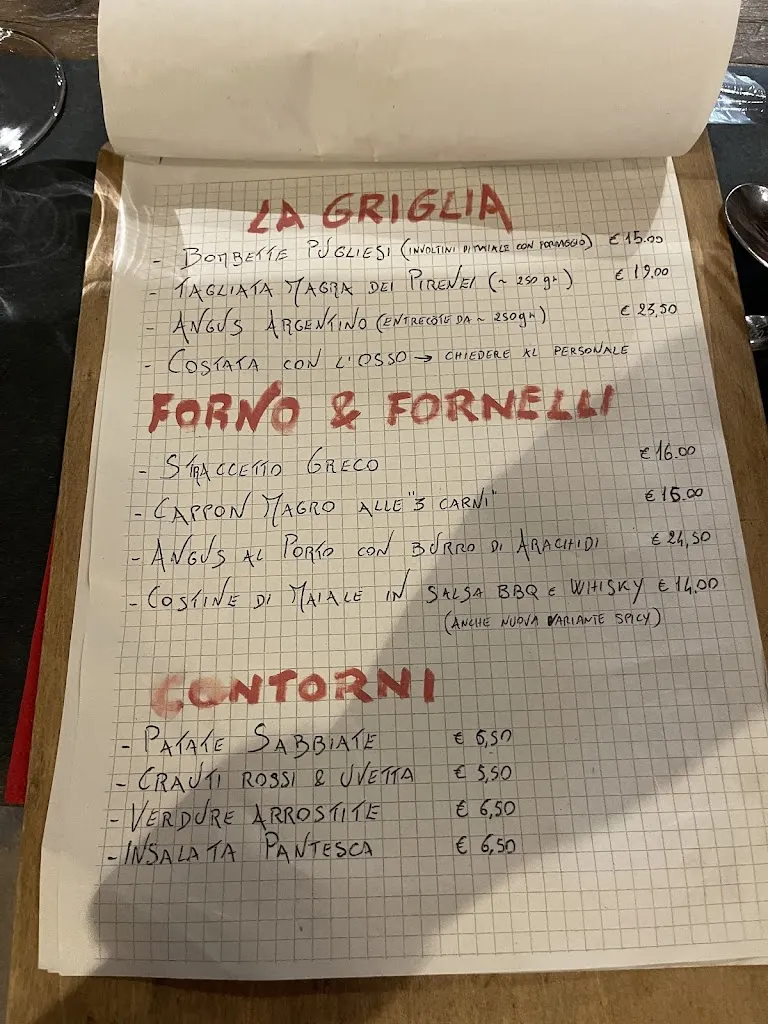 LA GRIGLIA
- BOMBETTE PUGLIESI (INVOLTINI DI MAIALE CON FORMAGGIO) € 15.00
- TAGLIATA MAGRA DEI PIRENEI (~ 250 gr) € 19,00
- ANGUS ARGENTINO (ENTRECOTE DA ~ 250gr) € 23,50
- COSTATA CON L'OSSO → CHIEDERE AL PERSONALE
FORNO & FORNELLI
- STRACCETTO GRECO € 16.00
- CAPPON MAGRO ALLE "3 CARNI" € 15.00
- ANGUS AL PORTO CON BURRO DI ARACHIDI € 24,50
- COSTINE DI MAIALE IN SALSA BBQ E WHISKY € 14.00
(ANCHE NUOVA VARIANTE SPICY)
CONTORNI
- PATATE SABBIATE € 6,50
- CRAUTI ROSSI & UVETTA € 5,50
- VERDURE ARROSTITE € 6,50
- INSALATA PANTESCA € 6,50